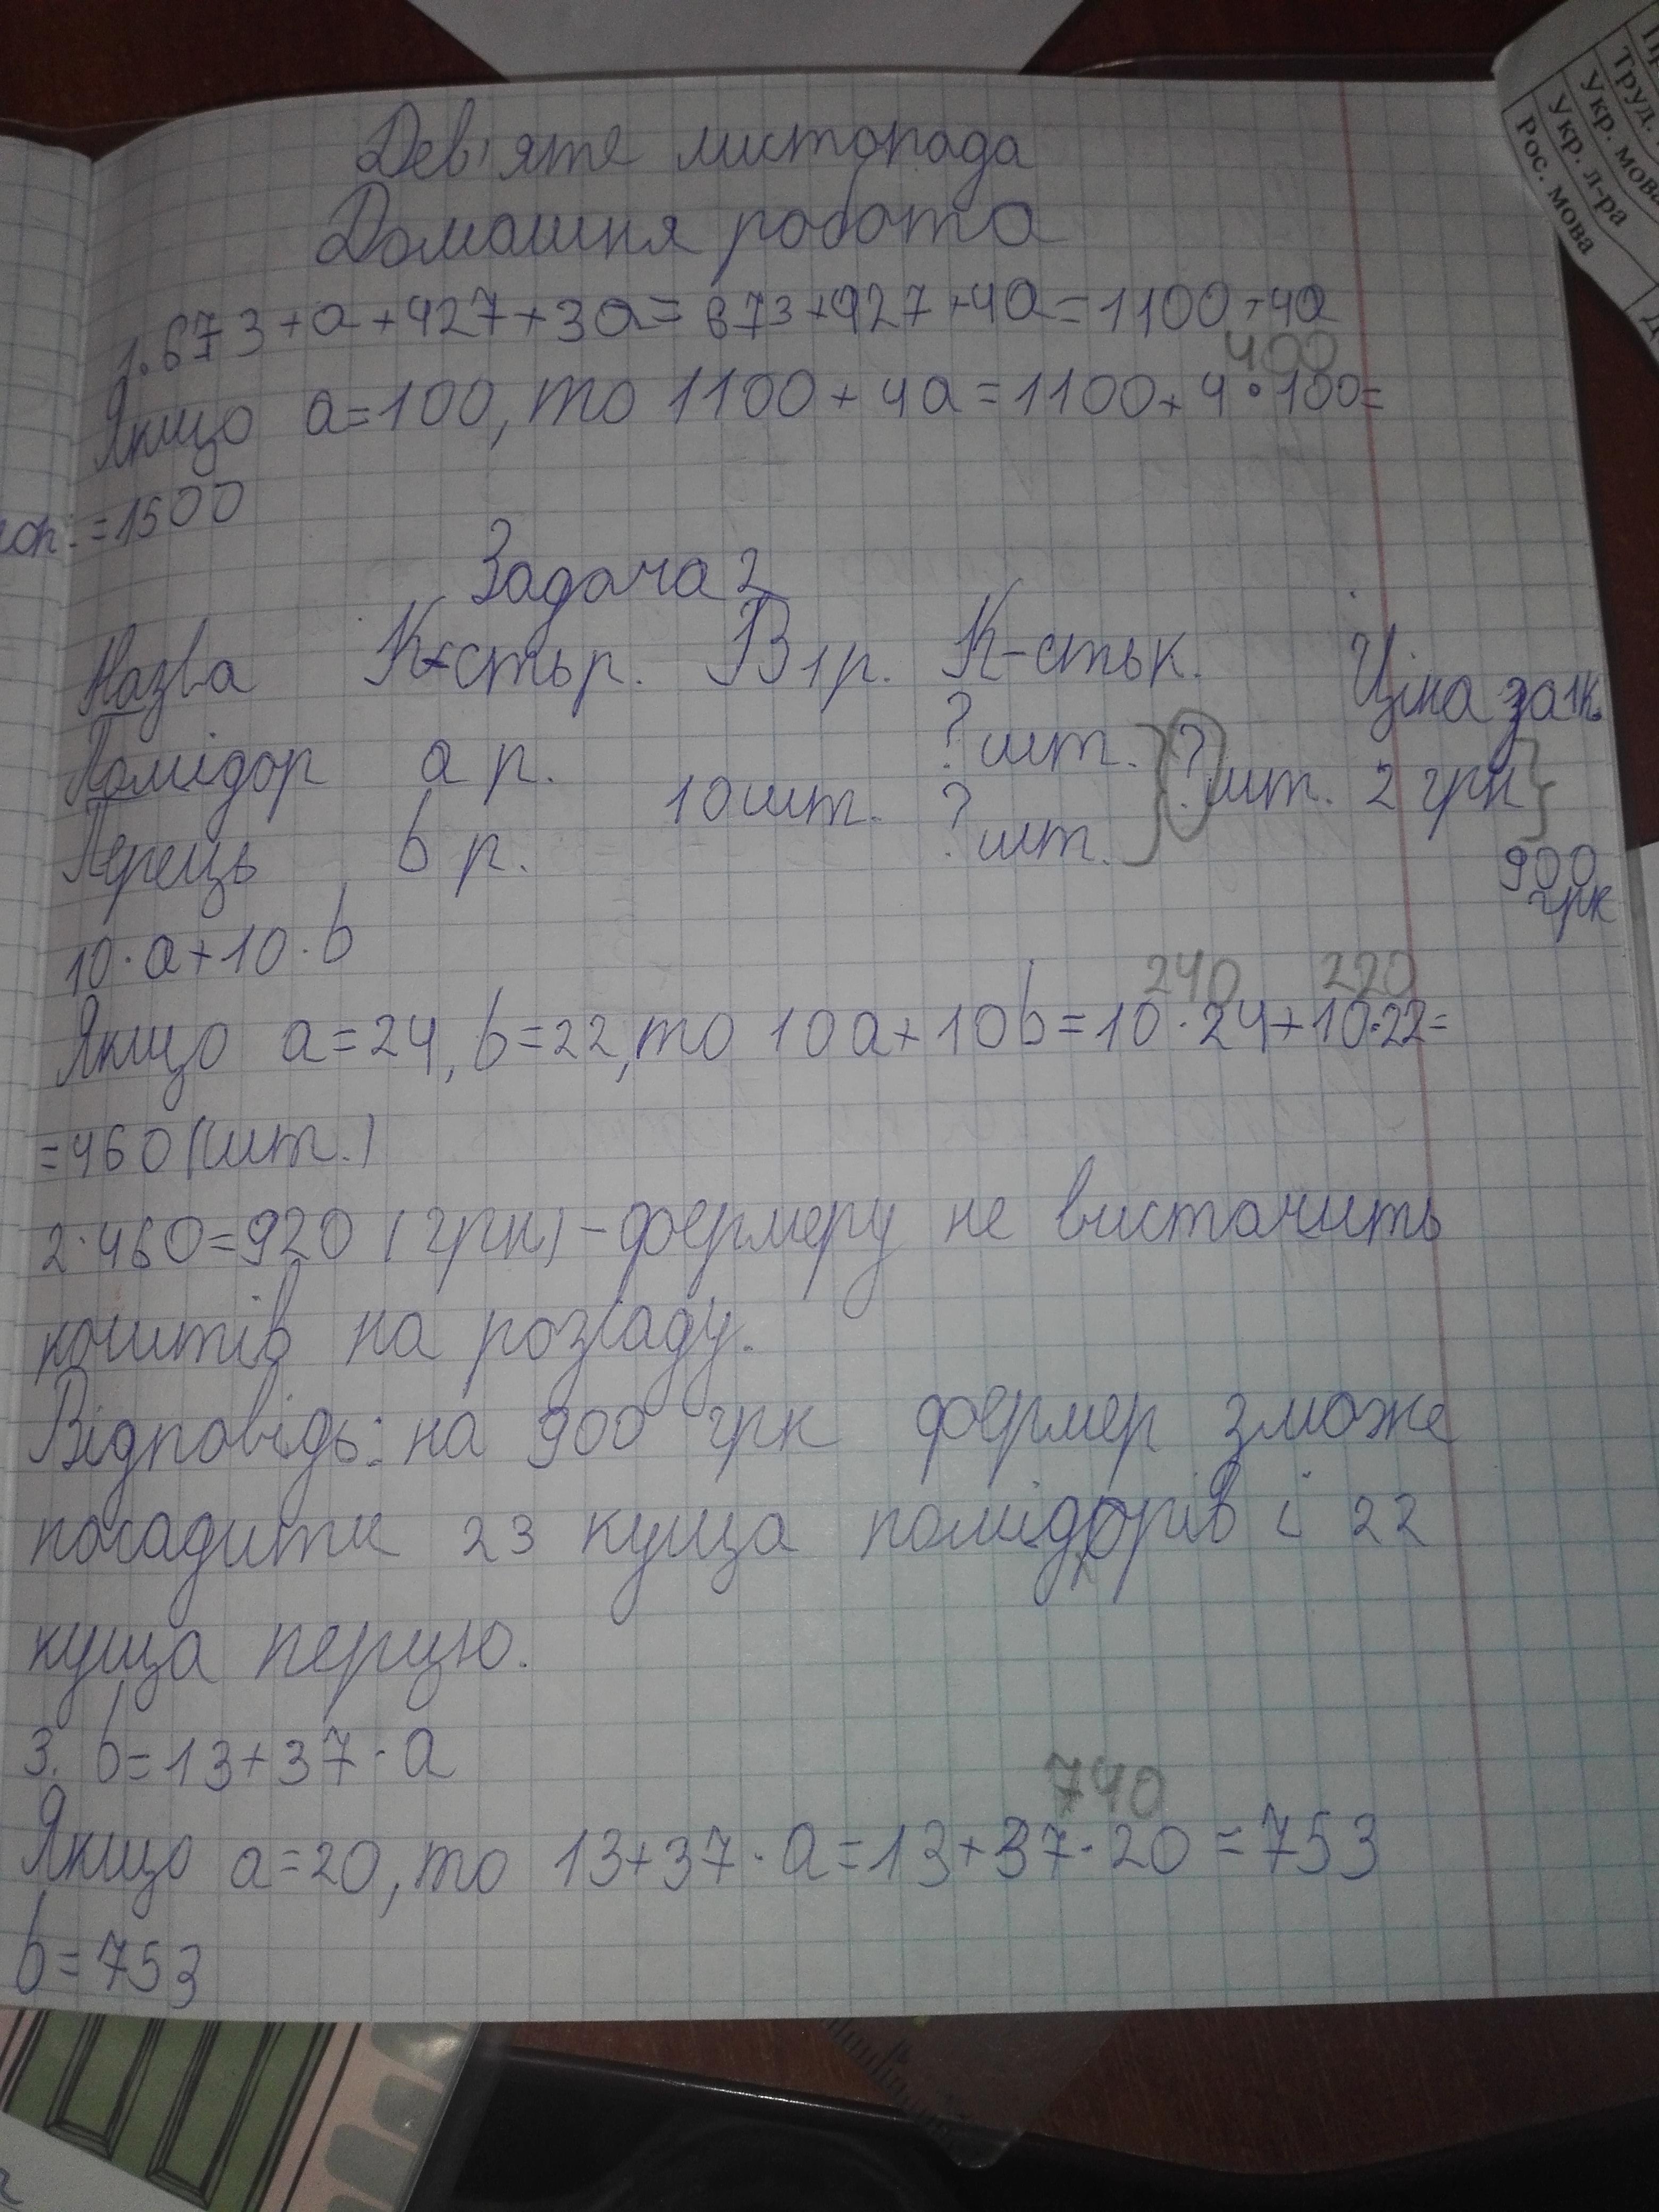 Труд.
Укр. мова
Укр. л-ра
Рос. мова
Дев'яте листопада
Домашня робота
1. 673+a+427+3a=673+427+4a=1100+4a
400
Якщо a=100, то 1100+4a=1100+4·100=
=1500
Задача 2
Назва К-стьр. В1р. К-стьк. Ціна за1к.
Помідор a р. ? шт.
10шт. ? шт. 2 грн
Перець b р. ? шт.
900
грн
10·a+10·b
240 220
Якщо a=24, b=22, то 10a+10b=10·24+10·22=
=460(шт.)
2·460=920 (грн) – фермеру не вистачить
коштів на розсаду.
Відповідь: на 900 грн фермер зможе
посадити 23 куща помідорів і 22
куща перцю.
3. b=13+37·a
740
Якщо a=20, то 13+37·a=13+37·20=753
b=753